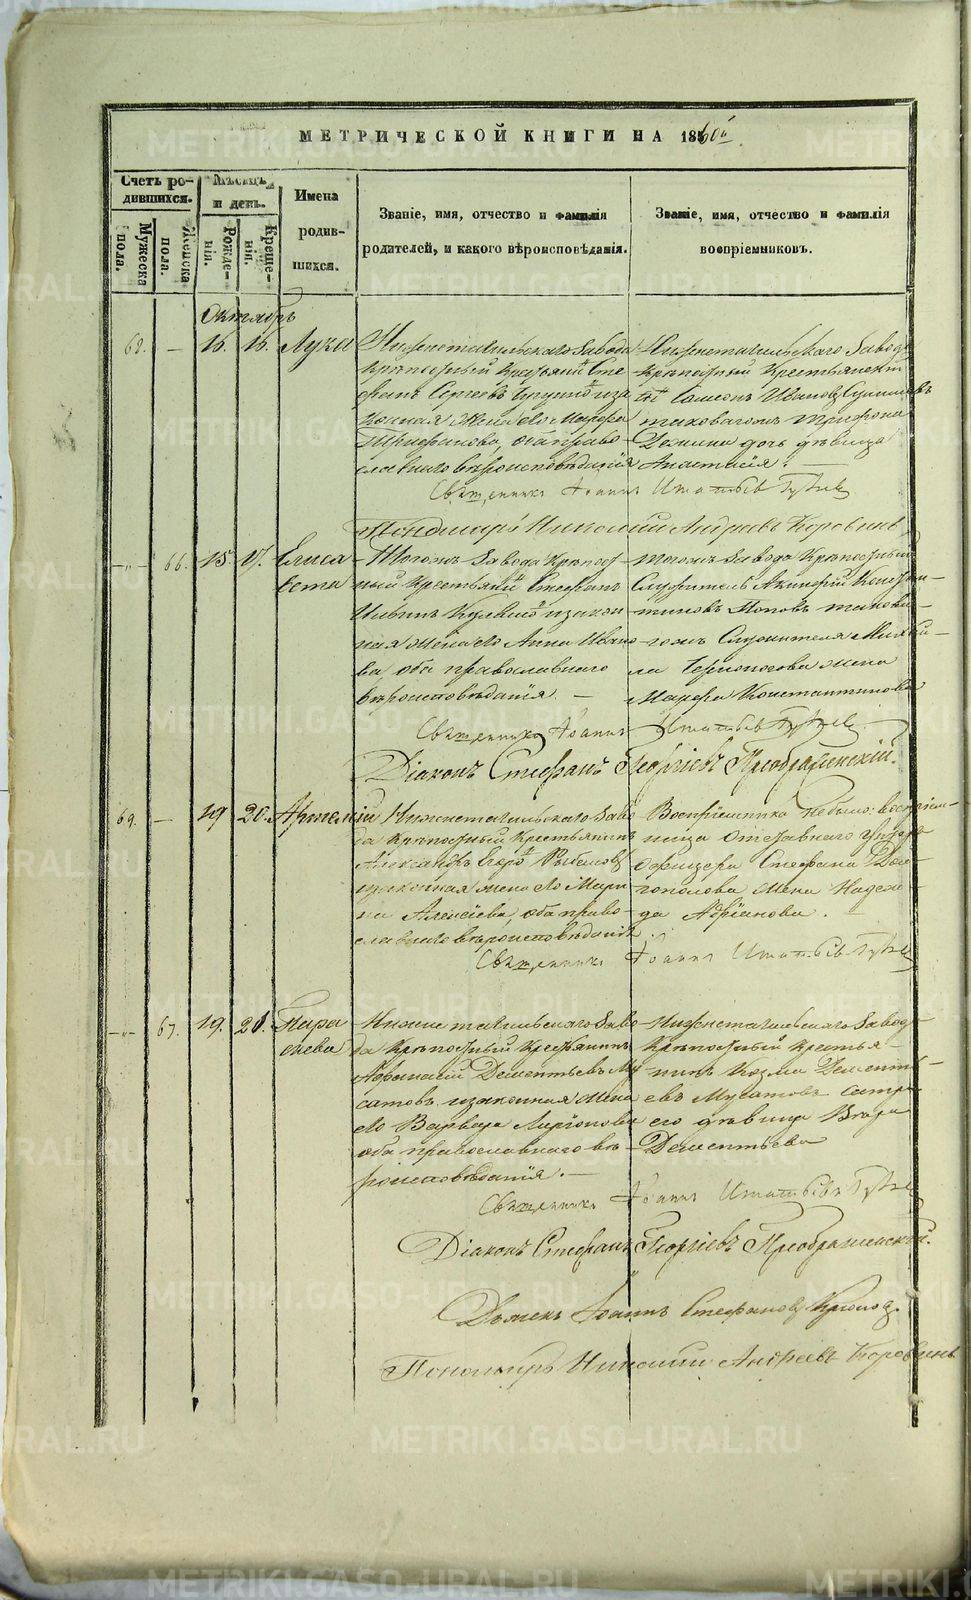 МЕТРИЧЕСКОЙ КНИГИ НА 1860й
Счетъ ро-
дившихся.
Мужеска
пола.
Женска
пола.
Мѣсяцъ
и день.
Рожде-
нія.
Креще-
нія.
Имена
родив-
шихся.
Званіе, имя, отчество и фамилія
родителей, и какого вѣроисповѣданія.
Званіе, имя, отчество и фамилія
воспріемниковъ.
Октябрь
68. — 15. 15. Лука
Нижнетагильскаго Завода
крѣпостный Крестьянинъ Сте-
фанъ Сергѣевъ
законная жена его Марфа
Трифонова, оба право-
славнаго вѣроисповѣданія
Нижнетагильскаго Завода
Крѣпостный Крестьянинъ
Самсонъ Ивановъ
таковагожъ Трифона
Демина дочь дѣвица
Анастасія.
Священникъ Іоаннъ Игнатьевъ
Пономарь Николай Андреевъ Коровинъ
—„— 66. 15. 17. Елиса
вета
Тогожъ Завода Крѣпост
ный Крестьянинъ Стефанъ
изакон
ная жена его Анна Ивано
ва, оба православнаго
вѣроисповѣданія. —
Тогожъ Завода Крѣпостный
Служитель Констан-
тиновъ Поповъ такова-
гожъ Служителя Миха
ла жена
Марфа Константинова
Священникъ Іоаннъ Игнатьевъ
Діаконъ Стефанъ Георгіевъ Преображенскій.
69. — 19 20. Артемій
Нижнетагильскаго Заво
да крѣпостный Крестьянинъ
Александръ
изаконная жена его Мари
на Алексіева, оба право-
славнаго вѣроисповѣданія.
Воспріемника небыло: воспріем-
ница Отставнаго Унтеръ
Офицера Стефана Дол-
гополова жена Надеж-
да Адріанова.
Священникъ Іоаннъ Игнатьевъ
—„— 67. 19. 21. Пара
скева
Нижнетагильскаго Заво
да Крѣпостный Крестьянинъ
Афанасій Дементьевъ Му
сатовъ изаконная жена
его Варвара Ларіонова
оба православнаго вѣ-
роисповѣданія. —
Нижнетагильскаго Завода
Крѣпостный крестья-
нинъ Козма Дементі-
евъ Мусатовъ сестра
его дѣвица Вѣра
Дементьева
Священникъ Іоаннъ Игнатьевъ
Діаконъ Стефанъ Георгіевъ Преображенскій.
Іоаннъ Стефановъ
Пономарь Николай Андреевъ Коровинъ
METRIKI.GASO-URAL.RU